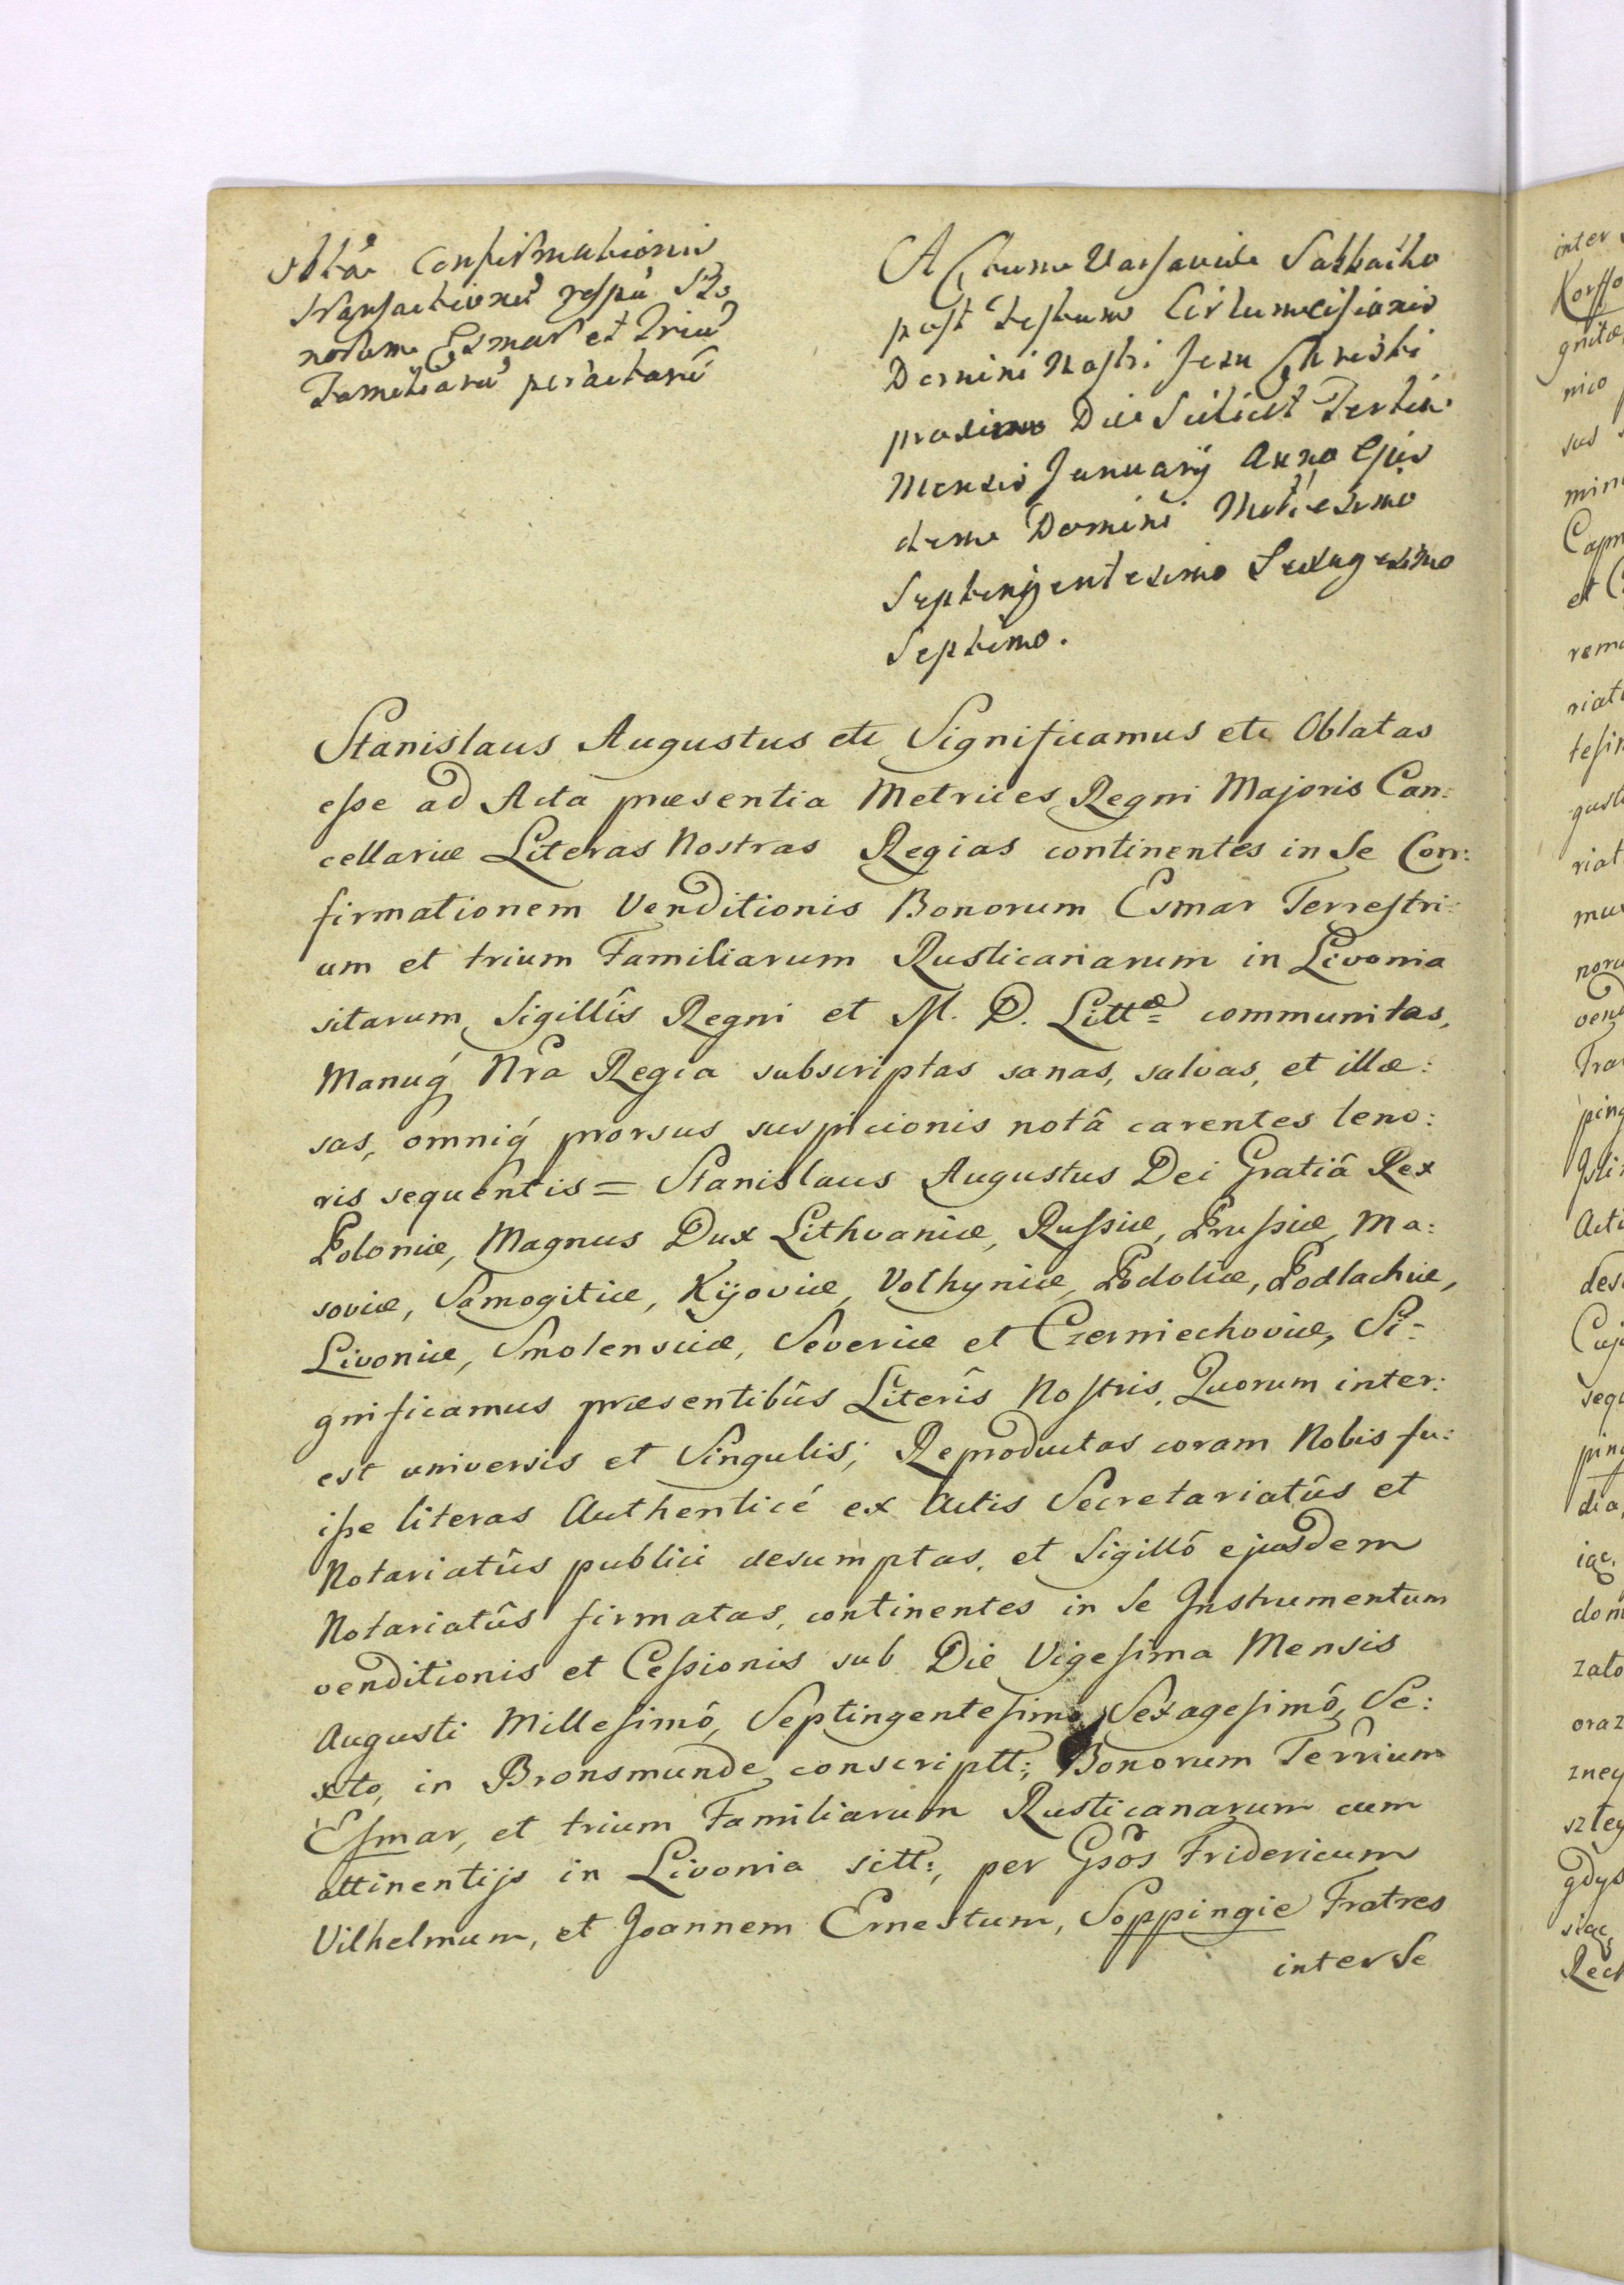 Obta Confirmationis
Transactionũ respũ Bo
norum Esmar et Triũ
Familiarũ peractarũ
Actum Varsaviæ Sabbatho
post Festum Circumcisionis
Domini Nostri Jesu Christi
proximo Die Scilicet Tertia
Mensis January Anno Ejus
dem Domini Millesimo
Septengentesimo Sexagesimo
Septimo.
Stanislaus Augustus etc Significamus etc Oblatas
eſse ad Acta præsentia Metrices Regni Majoris Can:
cellariæ Literas Nostras Regias continentes in Se Con:
firmationem Venditionis Bonorum Esmar Terreſtri:
um et trium Familiarum Rusticanarum in Livonia
sitarum Sigillîs Regni et M. D. Littæ communitas,
Manuq́ Nrã Regia subscriptas sanas, salvas, et illæ:
sas, omniq́ prorsus suspicionis notâ carentes teno:
ris sequentis = Stanislaus Augustus Dei Gratiâ Rex
Poloniæ, Magnus Dux Lithvaniæ, Ruſsiæ, Pruſsiæ, Ma:
soviæ, Samogitiæ, Kijoviæ, Volhyniæ, Podoliæ, Podlachiæ,
Livoniæ, Smolensciæ, Severiæ et Czerniechoviæ, Si=
gnificamus præsentibûs Literîs Noſtris, Quorum inter:
est universis et Singulis; Reproductas coram Nobis fu:
iſse literas Authenticé ex Actis Secretariatûs et
Notariatûs publici desumptas, et Sigillô ejusdem
Notariatûs firmatas, continentes in Se Instrumentum
venditionis et Ceſsionis sub Die Vigeſima Mensis
Augusti Milleſimô, Septingenteſimo, Sexageſimô, Se:
xto, in Bronsmunde conscriptt; Bonorum Terrium
Eſmar, et trium Familiarum Rusticanarum cum
attinentijs in Livonia sitt:, per Gsos Fridericum
Vilhelmum, et Joannem Ernestum, Soppingie Fratres
inter Se